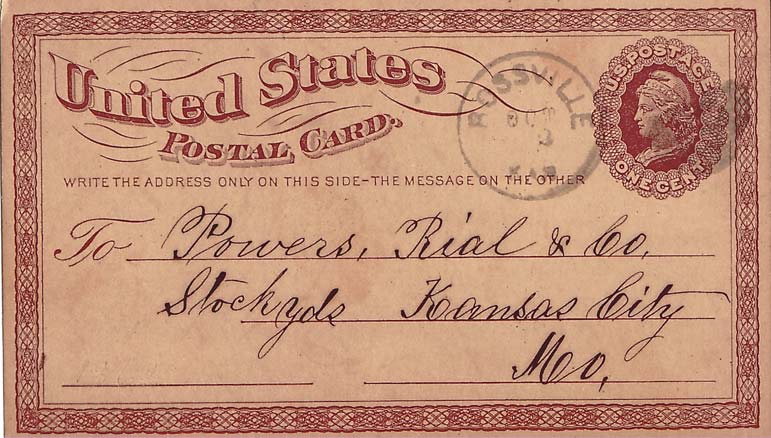 United States
POSTAL CARD.
U.S. POSTAGE
ONE CENT
ROSSVILLE
OCT
KAS
WRITE THE ADDRESS ONLY ON THIS SIDE-THE MESSAGE ON THE OTHER
To Powers, Rial & Co.
Stockyds Kansas City
Mo.